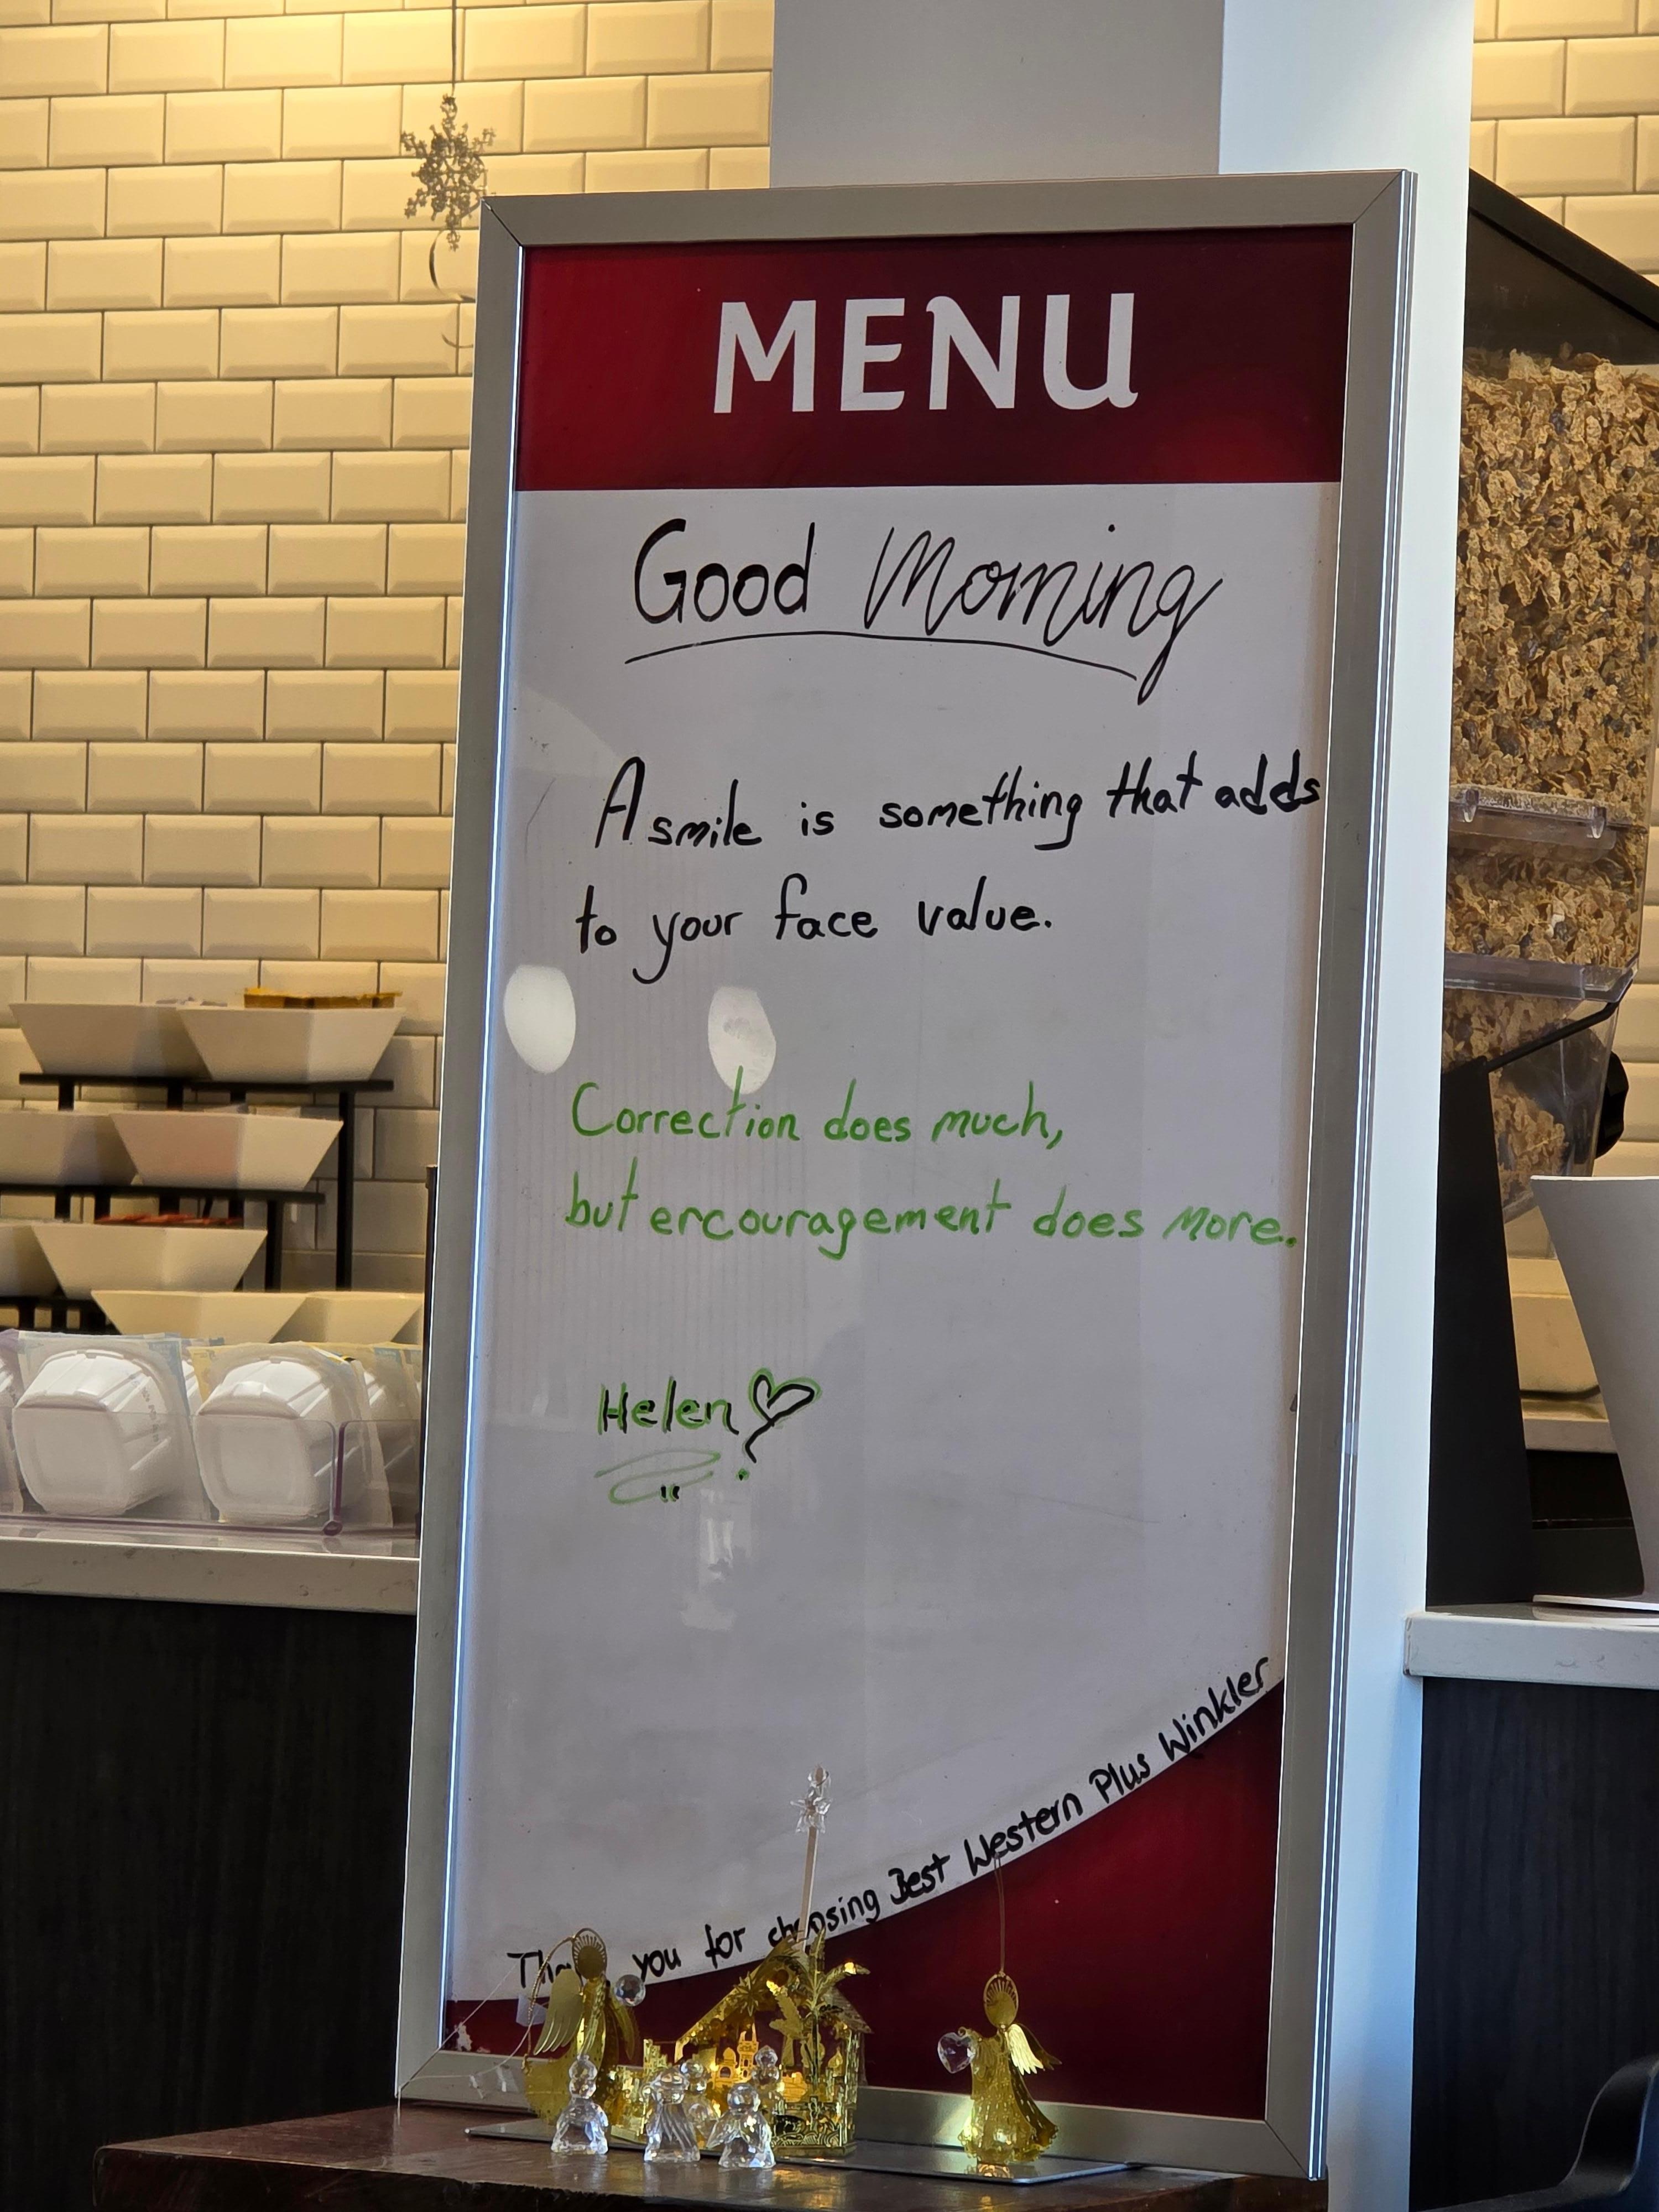 MENU
Good Morning
A smile is something that adds
to your face value.
Correction does much,
but encouragement does more.
Helen
Thank you for choosing Best Western Plus Winkler